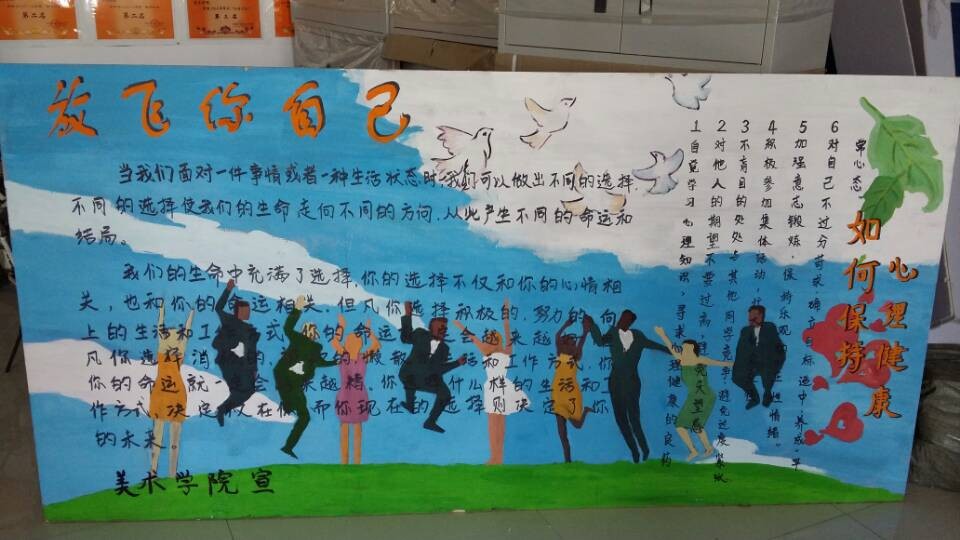 第二名
第二名
第三名
放飞你自己
当我们面对一件事情或者一种生活状态时，我们可以做出不同的选择，
不同的选择使我们的生命走向不同的方向，从此产生不同的命运和
结局。
我们的生命中充满了选择，你的选择不仅和你的心情相
关，也和你的命运相关。但凡你选择积极的，努力的，向
上的生活和工 式 你的命运 定会越来越
凡你选择消 的 的 懒散 活和工作方式，
你的命运就一 会 来越糟。你 什么样的生活和工
作方式，决定 在你 而你现在的选择则决定了你
的未来。
美术学院宣
如何保持
心理健康
1 自觉学习心理知识，寻求 理健康的良药
2 对他人的期望不要过高，避 失望感
3 不盲目的处处与其他同学竞争，避免过度紧张
4 积极参加集体活动，
5 加强意志锻炼，保持乐观 情绪。
6 对自己不过分苛求，确 目标适中，养成“平
常心态